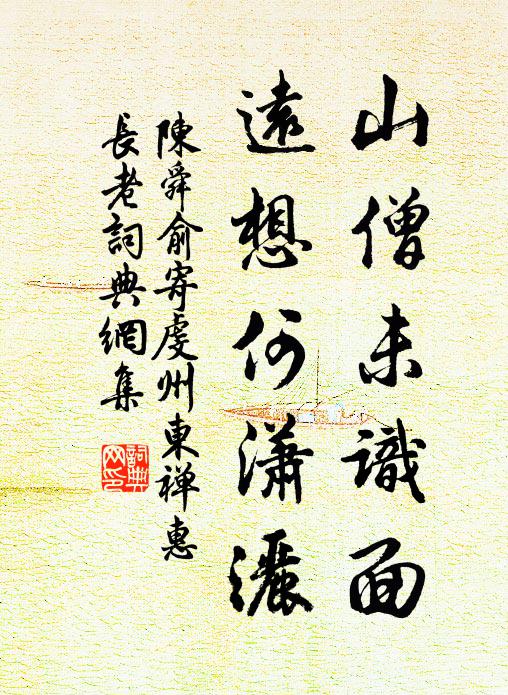 山僧未識面
遠想何瀟灑
陳舜俞寄虔州東禅惠
長老詞典網集
詞典網印